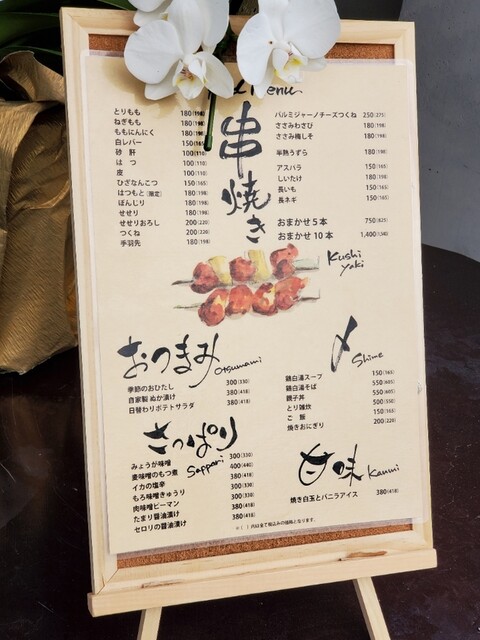 Menu
串焼き
Kushi yaki
とりもも 180(198)
ねぎもも 180(198)
ももにんにく 180(198)
白レバー 150(165)
砂肝 100(110)
はつ 100(110)
皮 100(110)
ひざなんこつ 150(165)
はつもと(限定) 180(198)
ぼんじり 180(198)
せせり 180(198)
せせりおろし 200(220)
つくね 200(220)
手羽先 180(198)
パルミジャーノチーズつくね 250(275)
ささみわさび 180(198)
ささみ梅しそ 180(198)
半熟うずら 180(198)
アスパラ 150(165)
しいたけ 180(198)
長いも 150(165)
長ネギ 150(165)
おまかせ5本 750(825)
おまかせ10本 1,400(1,540)
おつまみ
Otsumami
季節のおひたし 300(330)
自家製 ぬか漬け 380(418)
日替わりポテトサラダ 380(418)
さっぱり
Sappari
みょうが味噌 300(330)
麦味噌のもつ煮 400(440)
イカの塩辛 380(418)
もろ味噌きゅうり 300(330)
肉味噌ピーマン 300(330)
たまり醤油漬け 380(418)
セロリの醤油漬け 380(418)
〆
Shime
鶏白湯スープ 150(165)
鶏白湯そば 550(605)
親子丼 550(605)
とり雑炊 500(550)
ご飯 150(165)
焼きおにぎり 200(220)
甘味
Kanmi
焼き白玉とバニラアイス 380(418)
※( )内は全て税込みの価格となります。